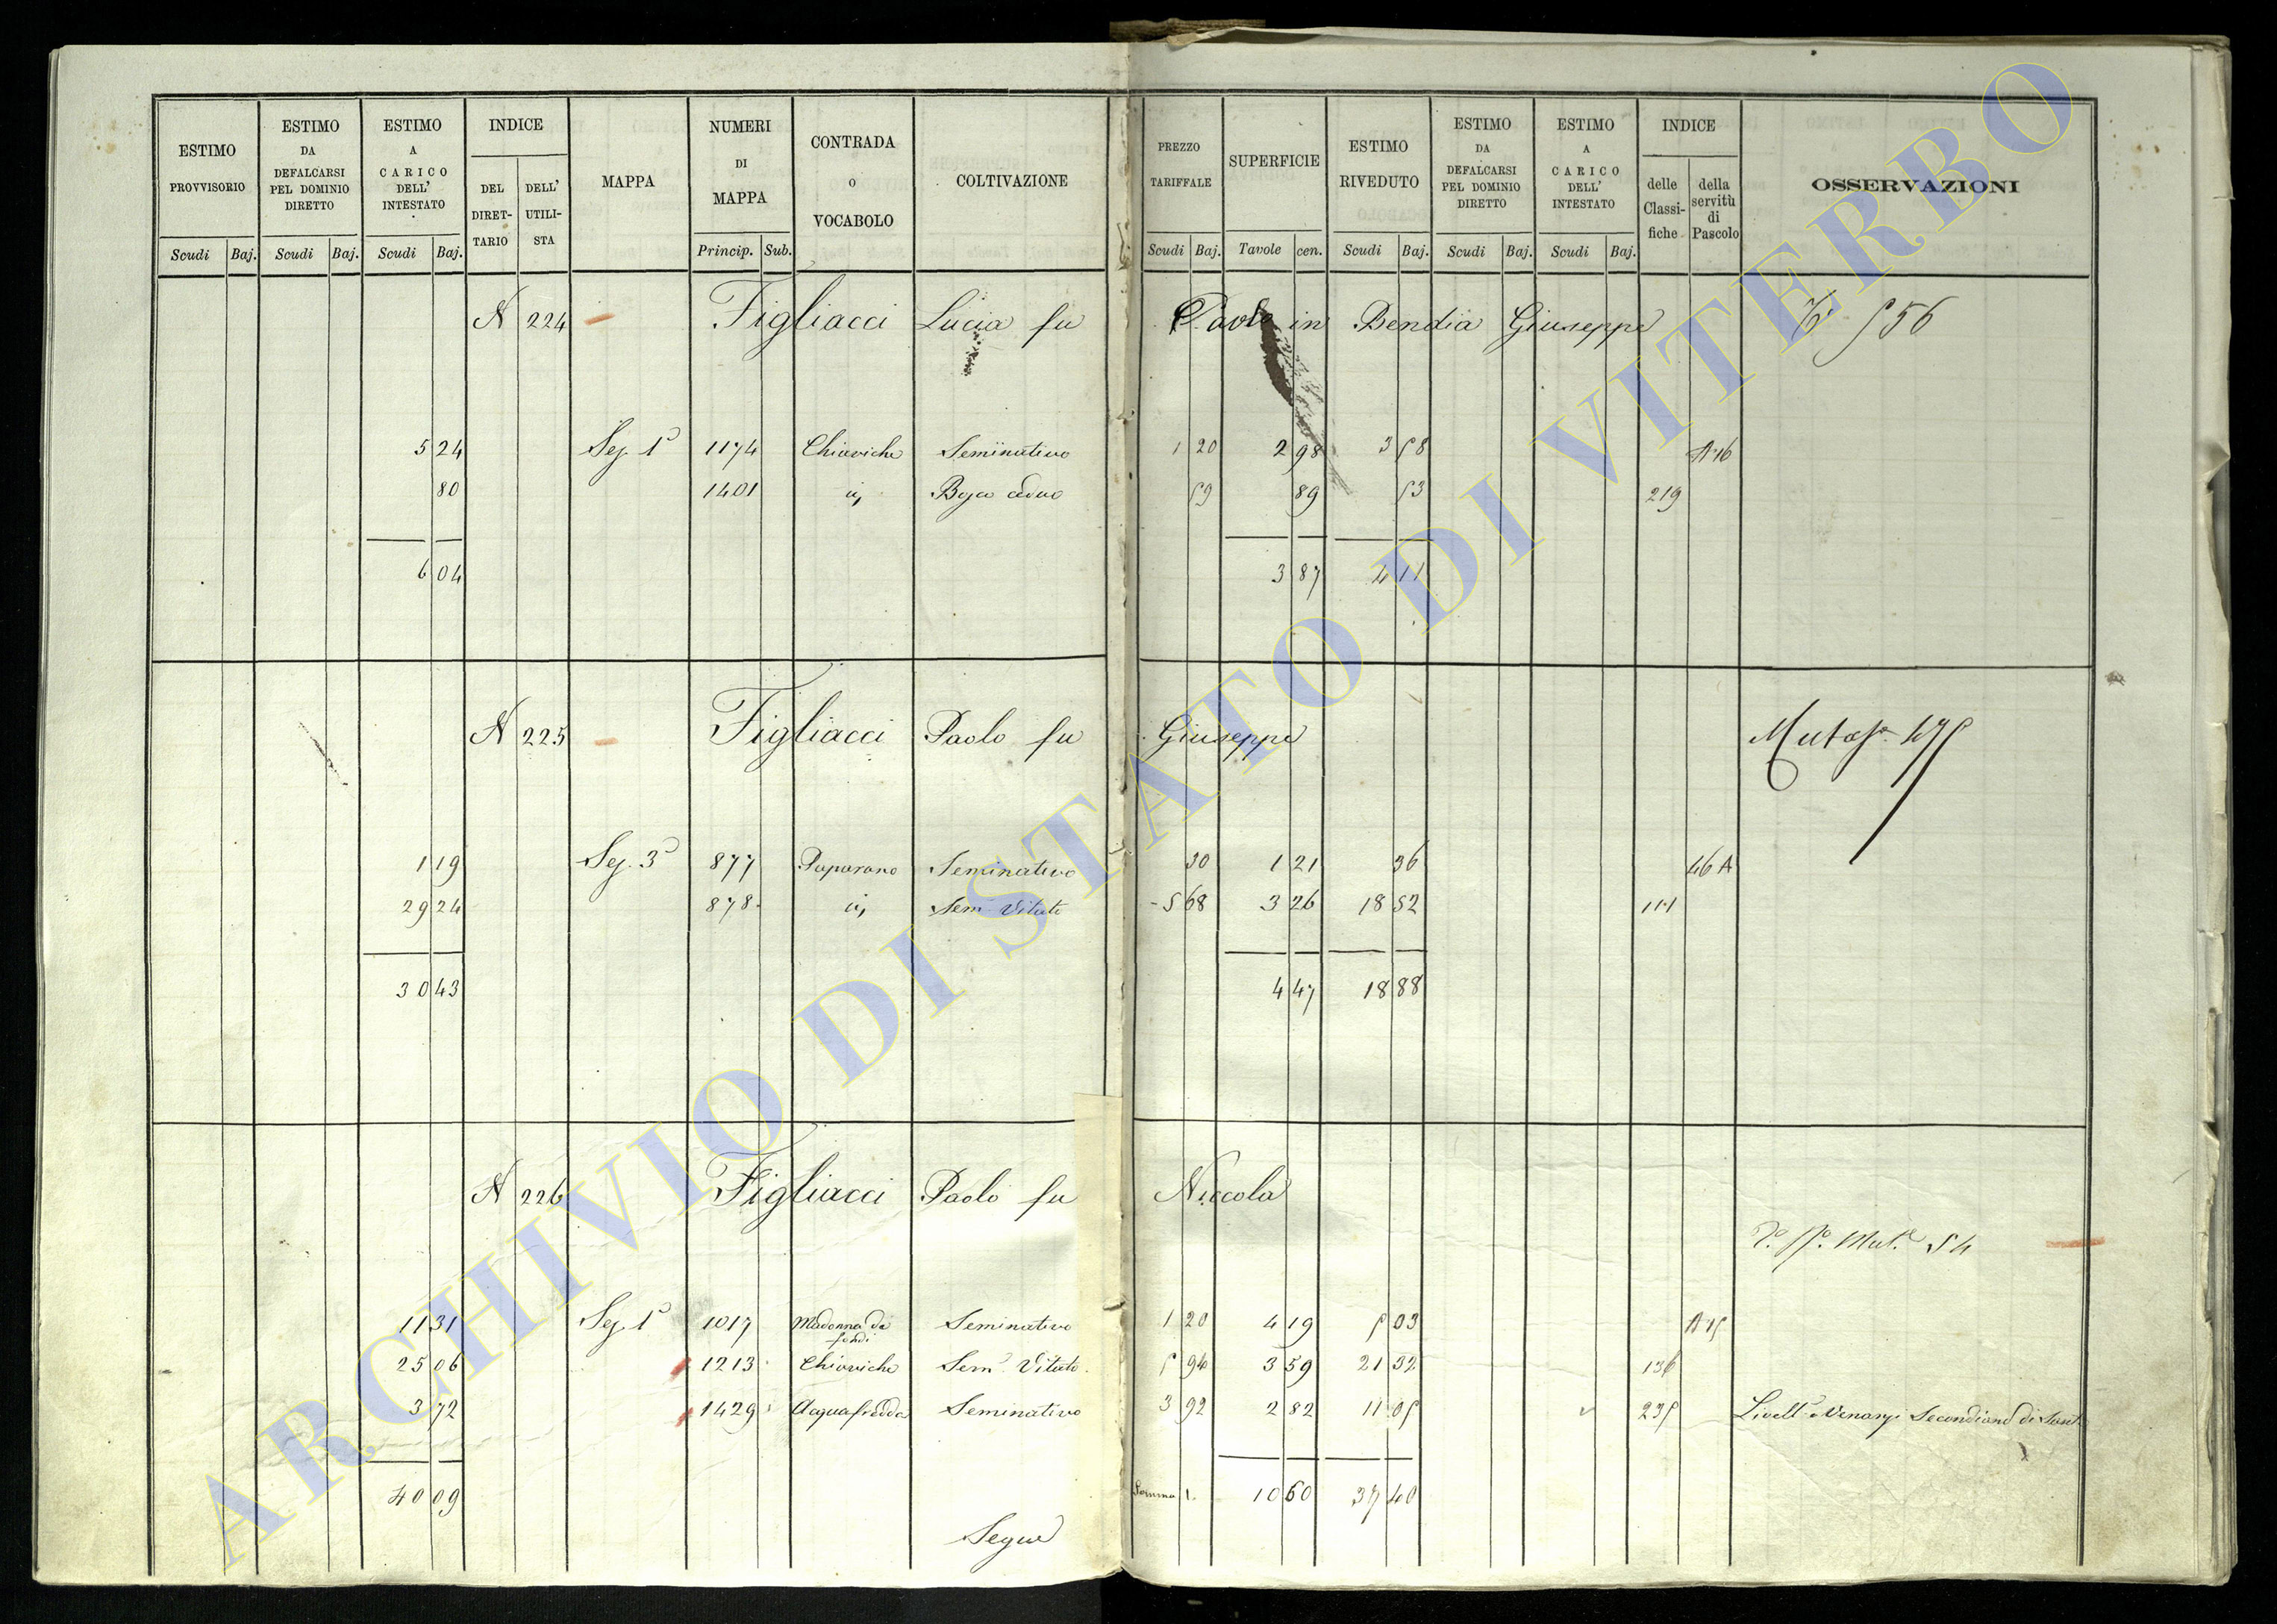 ESTIMO PROVVISORIO | ESTIMO DA DEFALCARSI PEL DOMINIO DIRETTO | ESTIMO A CARICO DELL' INTESTATO | INDICE | DEL DIRETTARIO | DELL' UTILISTA | MAPPA | NUMERI DI MAPPA | CONTRADA O VOCABOLO | COLTIVAZIONE | PREZZO TARIFFALE | SUPERFICIE | ESTIMO RIVEDUTO | ESTIMO DA DEFALCARSI PEL DOMINIO DIRETTO | ESTIMO A CARICO DELL' INTESTATO | INDICE | delle Classifiche | della servitù di Pascolo | OSSERVAZIONI
Scudi Baj. | Scudi Baj. | Scudi Baj. | Princip. Sub. | Scudi Baj. | Tavole cen. | Scudi Baj. | Scudi Baj. | Scudi Baj.
N 224 Figliacci Lucia fu Paolo in Bendia Giuseppe 556
5 24 Sez. 1ª 1174 Chiaviche Seminativo 1 20 2 98 3 58 A 16
80 1401 id. Bosco ceduo 59 89 53 219
6 04 3 87 4 11
N 225 Figliacci Paolo fu Giuseppe
1 19 Sez. 3ª 877 Paparano Seminativo 30 1 21 36 46 A
29 24 878 id. Sem. Vitato 5 68 3 26 18 52 111
30 43 4 47 18 88
N 226 Figliacci Paolo fu Niccola
54
11 31 Sez. 1ª 1017 Madonna de fondi Seminativo 1 20 4 19 5 03
25 06 1213 Chiaviche Sem. Vitato 5 94 3 59 21 32 136
3 72 1429 Acquafredda Seminativo 3 92 2 82 11 05 235 Livell. Secondiano di
40 09 Somma 10 60 37 40
Segue
ARCHIVIO DI STATO DI VITERBO